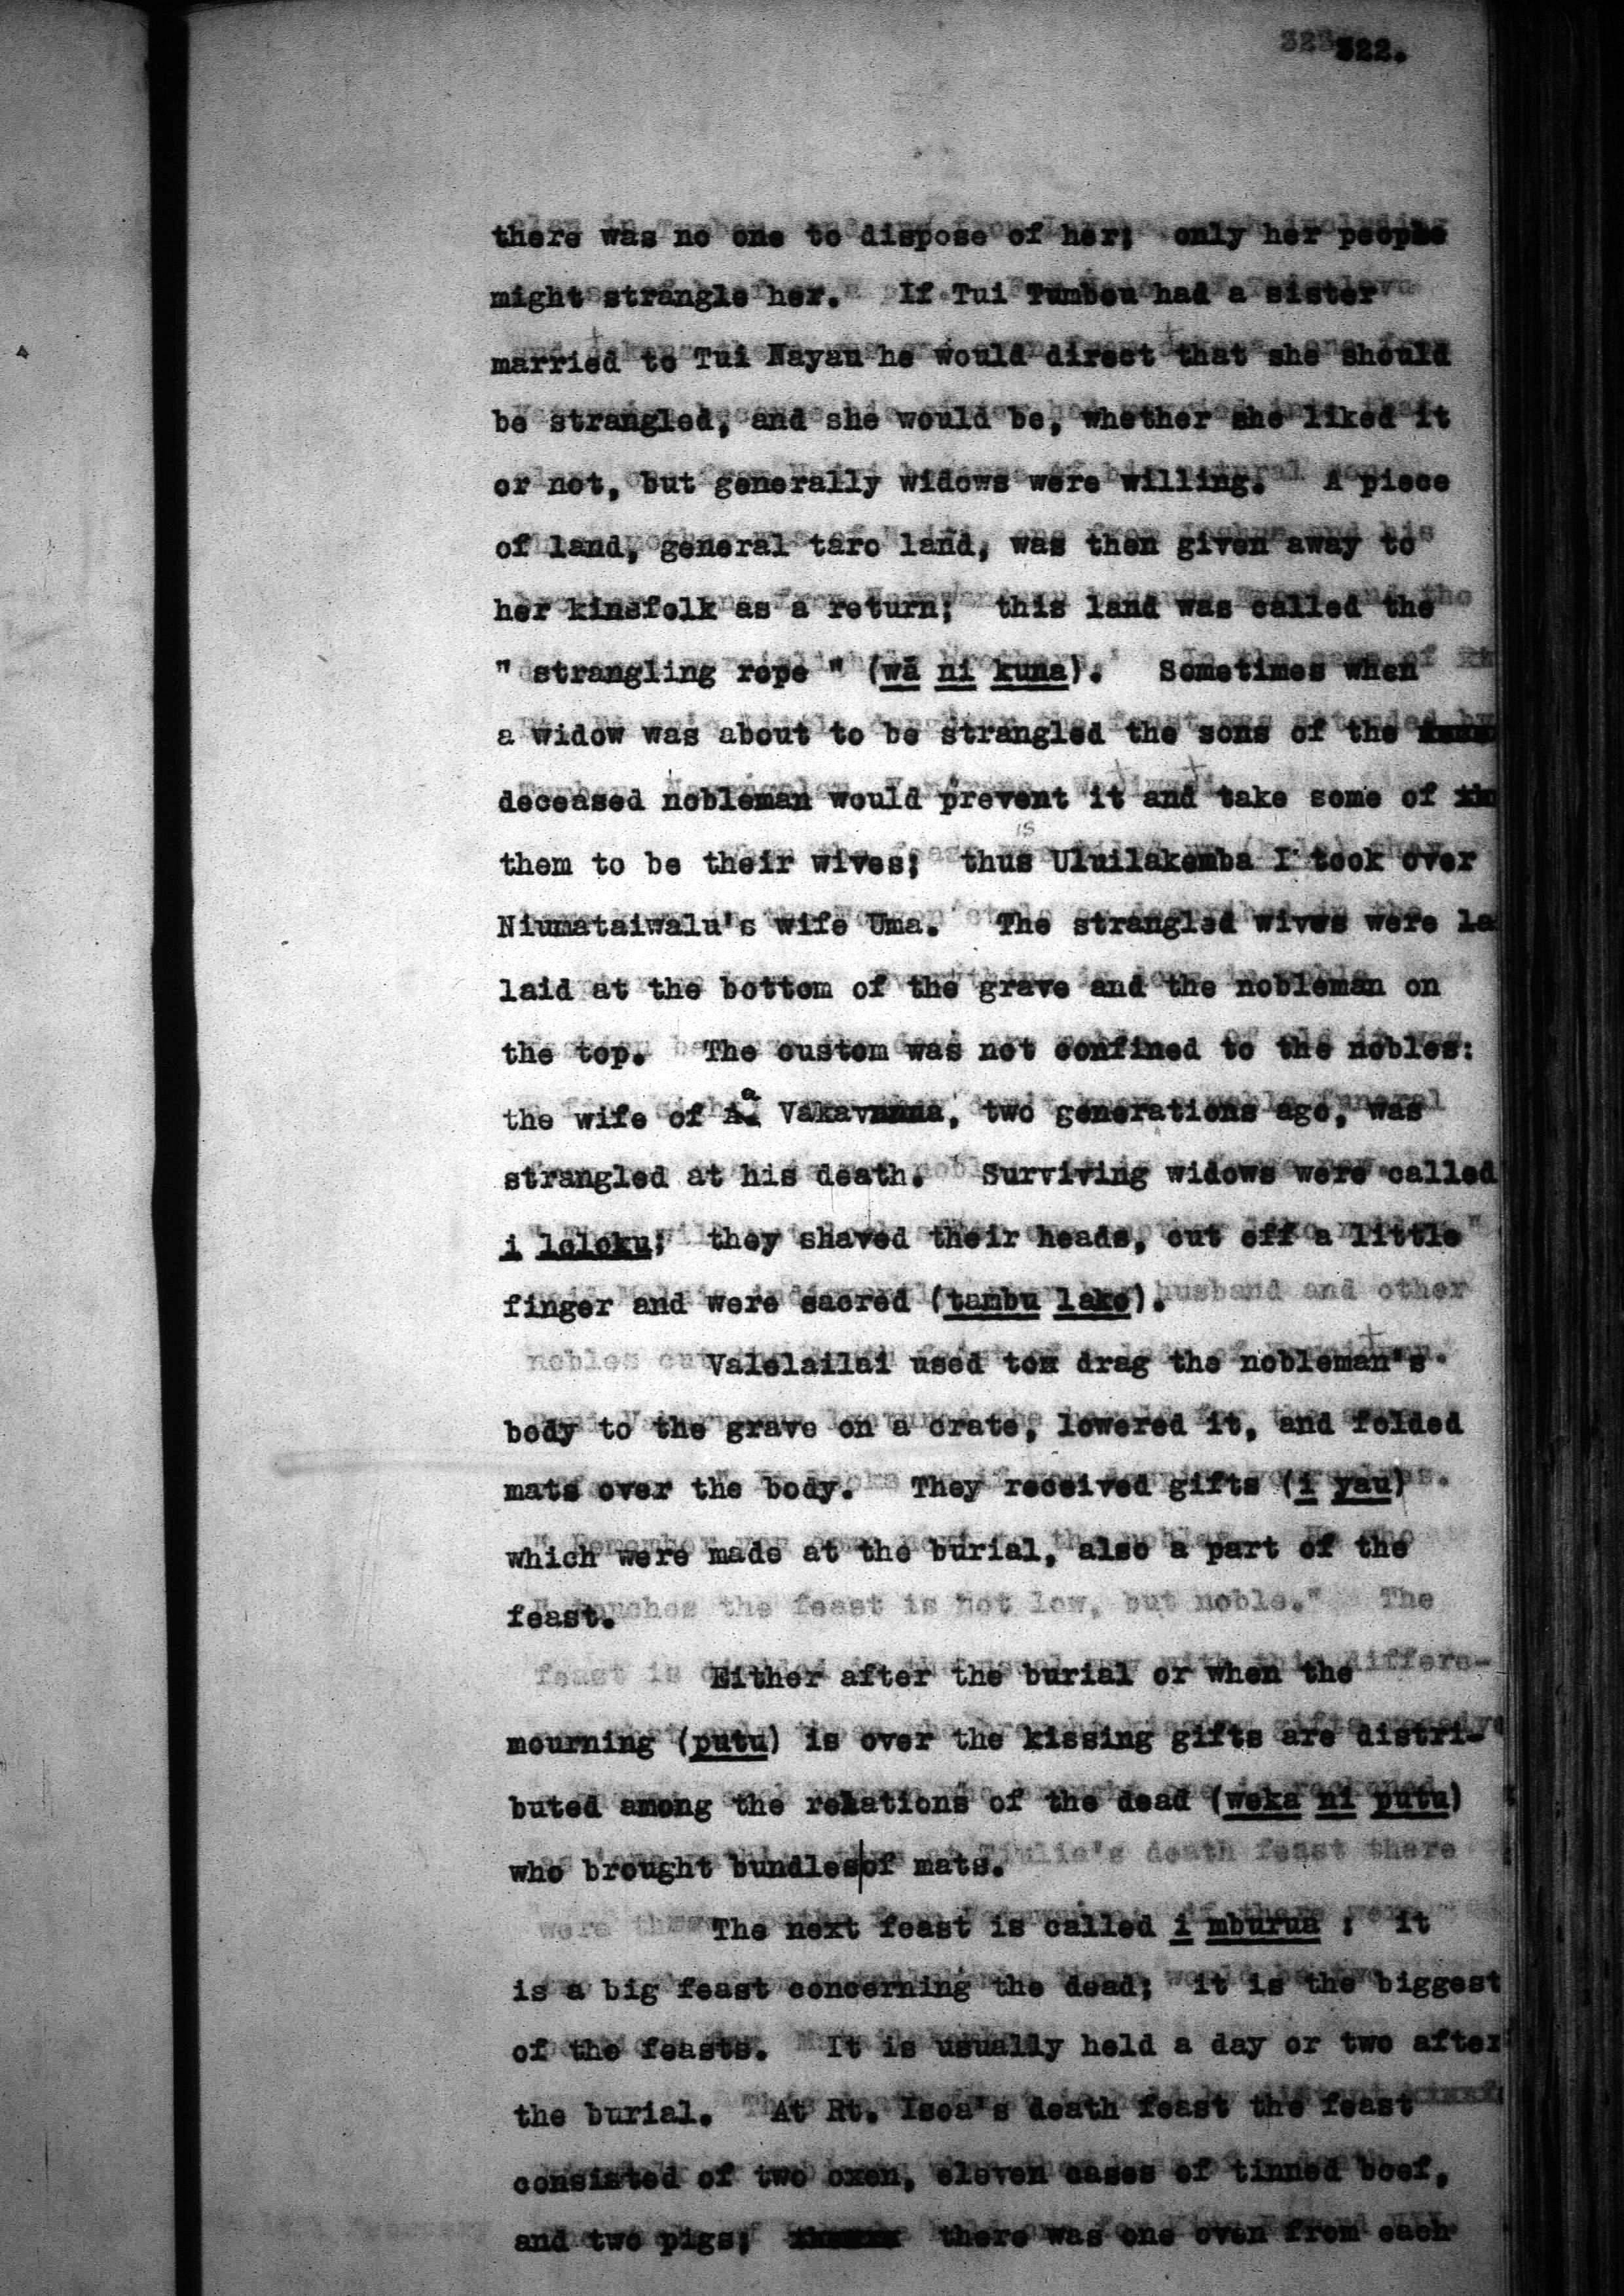 322.
there was no one to dispose of her; only her people
might strangle her. If Tui Tumbou had a sister
married to Tui Nayau he would direct that she should
be strangled, and she would be, whether she liked it
or not, but generally widows were willing. A piece
of land, general taro land, was then given away to
her kinsfolk as a return; this land was called the
" strangling rope " (wā ni kuna). Sometimes when
a widow was about to be strangled the sons of the
deceased nobleman would prevent it and take some of
them to be their wives; thus Uluilakemba I took over
Niumataiwalu's wife Uma. The strangled wives were la
laid at the bottom of the grave and the nobleman on
the top. The custom was not confined to the nobles:
the wife of a Vakavanua, two generations ago, was
strangled at his death. Surviving widows were called
i loloku; they shaved their heads, cut off a little
finger and were sacred (tambu lako).
Valelailai used to drag the nobleman's
body to the grave on a crate, lowered it, and folded
mats over the body. They received gifts (i yau)
which were made at the burial, also a part of the
feast.
Either after the burial or when the
mourning (putu) is over the kissing gifts are distri-
buted among the relations of the dead (weka ni putu)
who brought bundles|of mats.
The next feast is called i mburua : it
is a big feast concerning the dead; it is the biggest
of the feasts. It is usually held a day or two after
the burial. At Rt. Isoa's death feast the feast
consisted of two oxen, eleven cases of tinned beef,
and two pigs; there was one oven from each